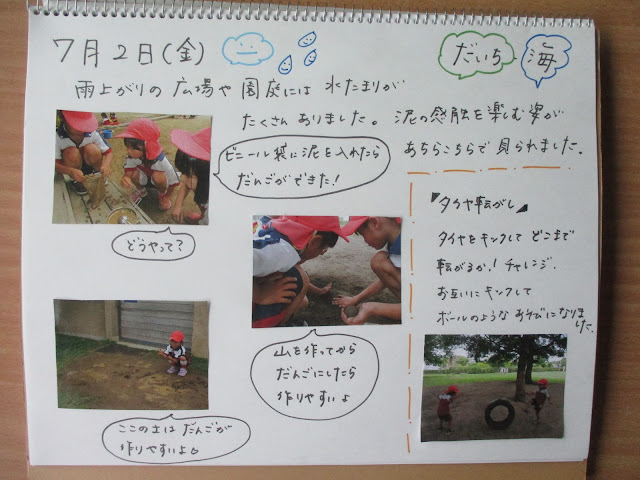 7月2日(金)
だいち
海
雨上がりの広場や園庭には水たまりが
たくさんありました。泥の感触を楽しむ姿が
あちらこちらで見られました。
ビニール袋に泥を入れたら
だんごができた!
どうやって?
山を作ってから
だんごにしたら
作りやすいよ
ここの土はだんごが
作りやすいよ
『タイヤ転がし』
タイヤをキックしてどこまで
転がるか!チャレンジ.
お互いにキックして
ボールのようなあそびになりました。